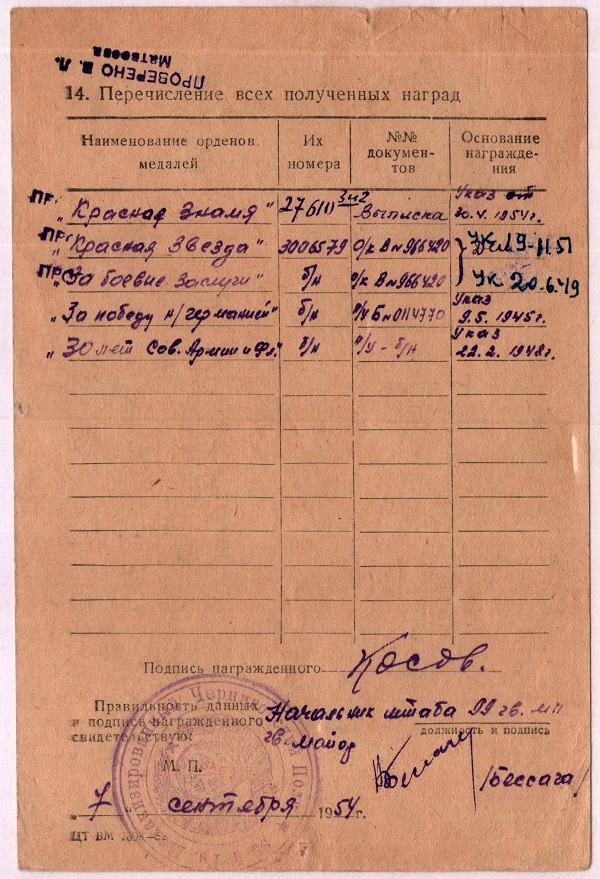 ПРОВЕРЕНО В. Л.
Матвеева
14. Перечисление всех полученных наград
Наименование орденов, медалей | Их номера | №№ документов | Основание награждения
„Красная Знамя" 276111 Выписка Указ от 30.4.1954г.
„Красная Звезда" 3006579 о/к В№966420 Ук 19-11 51
„За боевые Заслуги" б/н о/к В№966420 Ук 20.6.49
„За победу н/германией" б/н Б№0114770 Указ 9.5.1945г.
„30 лет Сов. Армии и Фл." б/н б/н Указ 22.2.1948г.
Подпись награжденного Косов.
Правильность данных
и подпись награжденного
свидетельствую:
Начальник штаба 99 гв. мп
должность и подпись
гв. майор
/Бессага/
М. П.
„7" сентября 1954г.
ЦТ ВМ